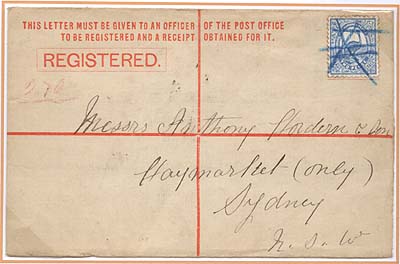 THIS LETTER MUST BE GIVEN TO AN OFFICER OF THE POST OFFICE
TO BE REGISTERED AND A RECEIPT OBTAINED FOR IT.
REGISTERED.
Messrs Anthony Hordern & Son
Haymarket (only)
Sydney
N. S. W